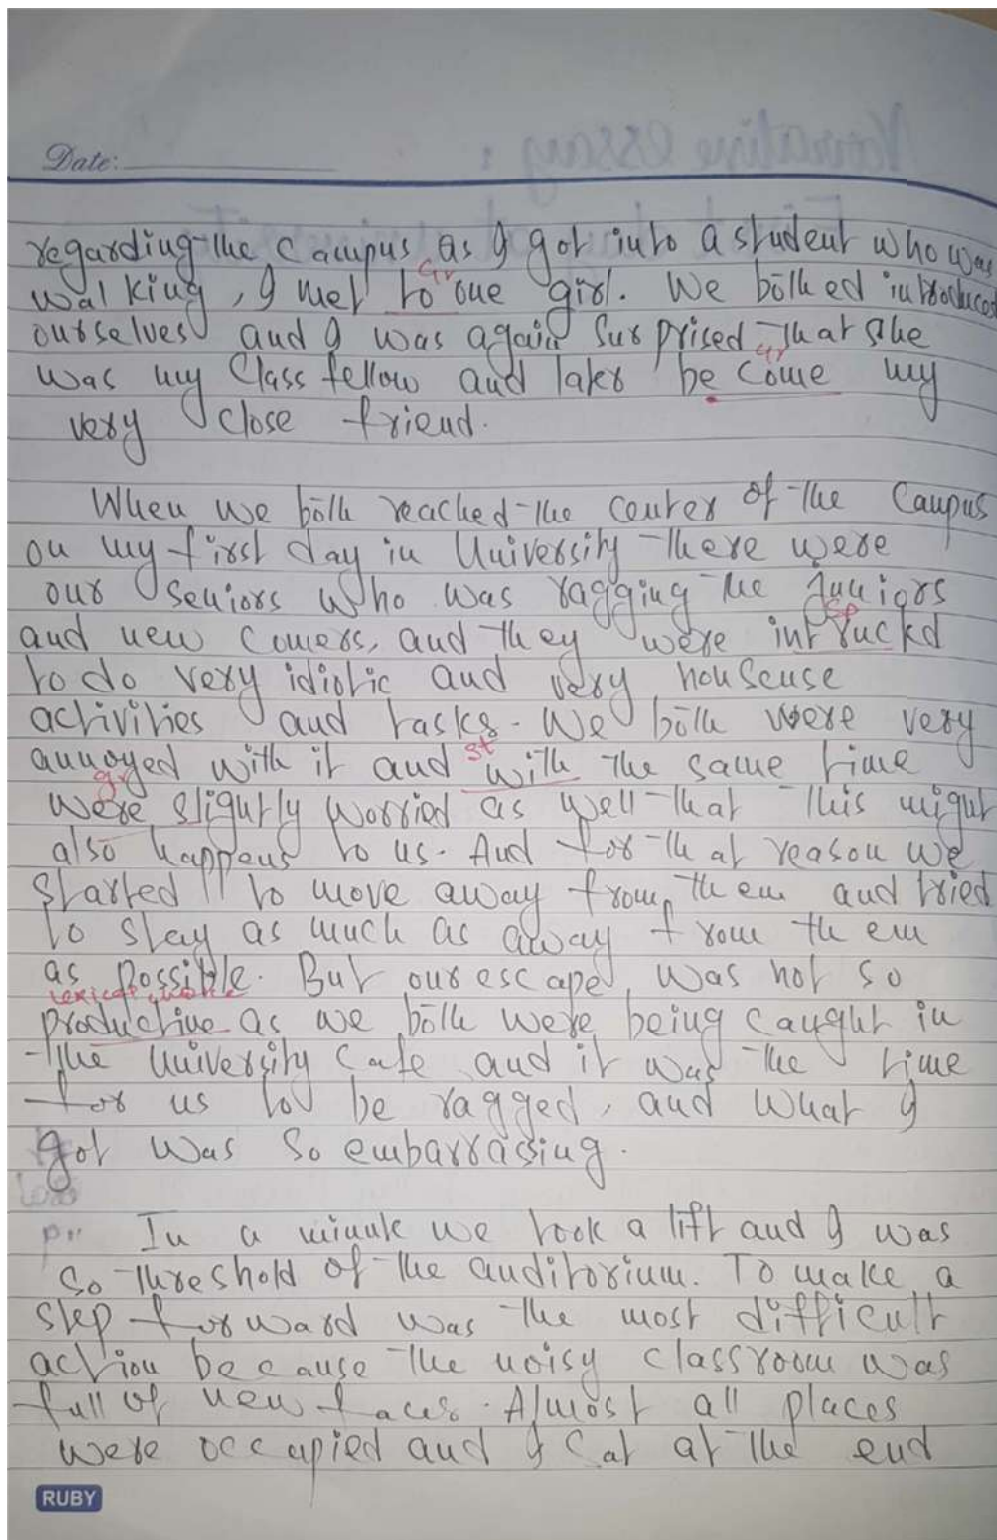 Date:
regarding the campus as I got into a student who was
gr
walking, I met to one girl. We bothed introduces
ourselves and I was again surprised that she
gr
was my class fellow and later become my
very close friend.
When we both reached the center of the campus
on my first day in University there were
our seniors who was ragging the juniors
sp
and new comers, and they were intruckd
to do very idiotic and very nonsense
activities and tasks. We both were very
st
annoyed with it and with the same time
gr
were sligutly worried as well that this might
also happens to us. And for that reason we
started to move away from them and tried
to stay as much as away from them
as possible. But our escape was not so
lexical
productive as we both were being caught in
the University cafe and it was the time
for us to be ragged, and what I
got was so embarrassing.
In a minute we took a lift and I was
so threshold of the auditorium. To make a
step forward was the most difficult
action because the noisy classroom was
full of new faces. Almost all places
were occupied and I sat at the end
RUBY